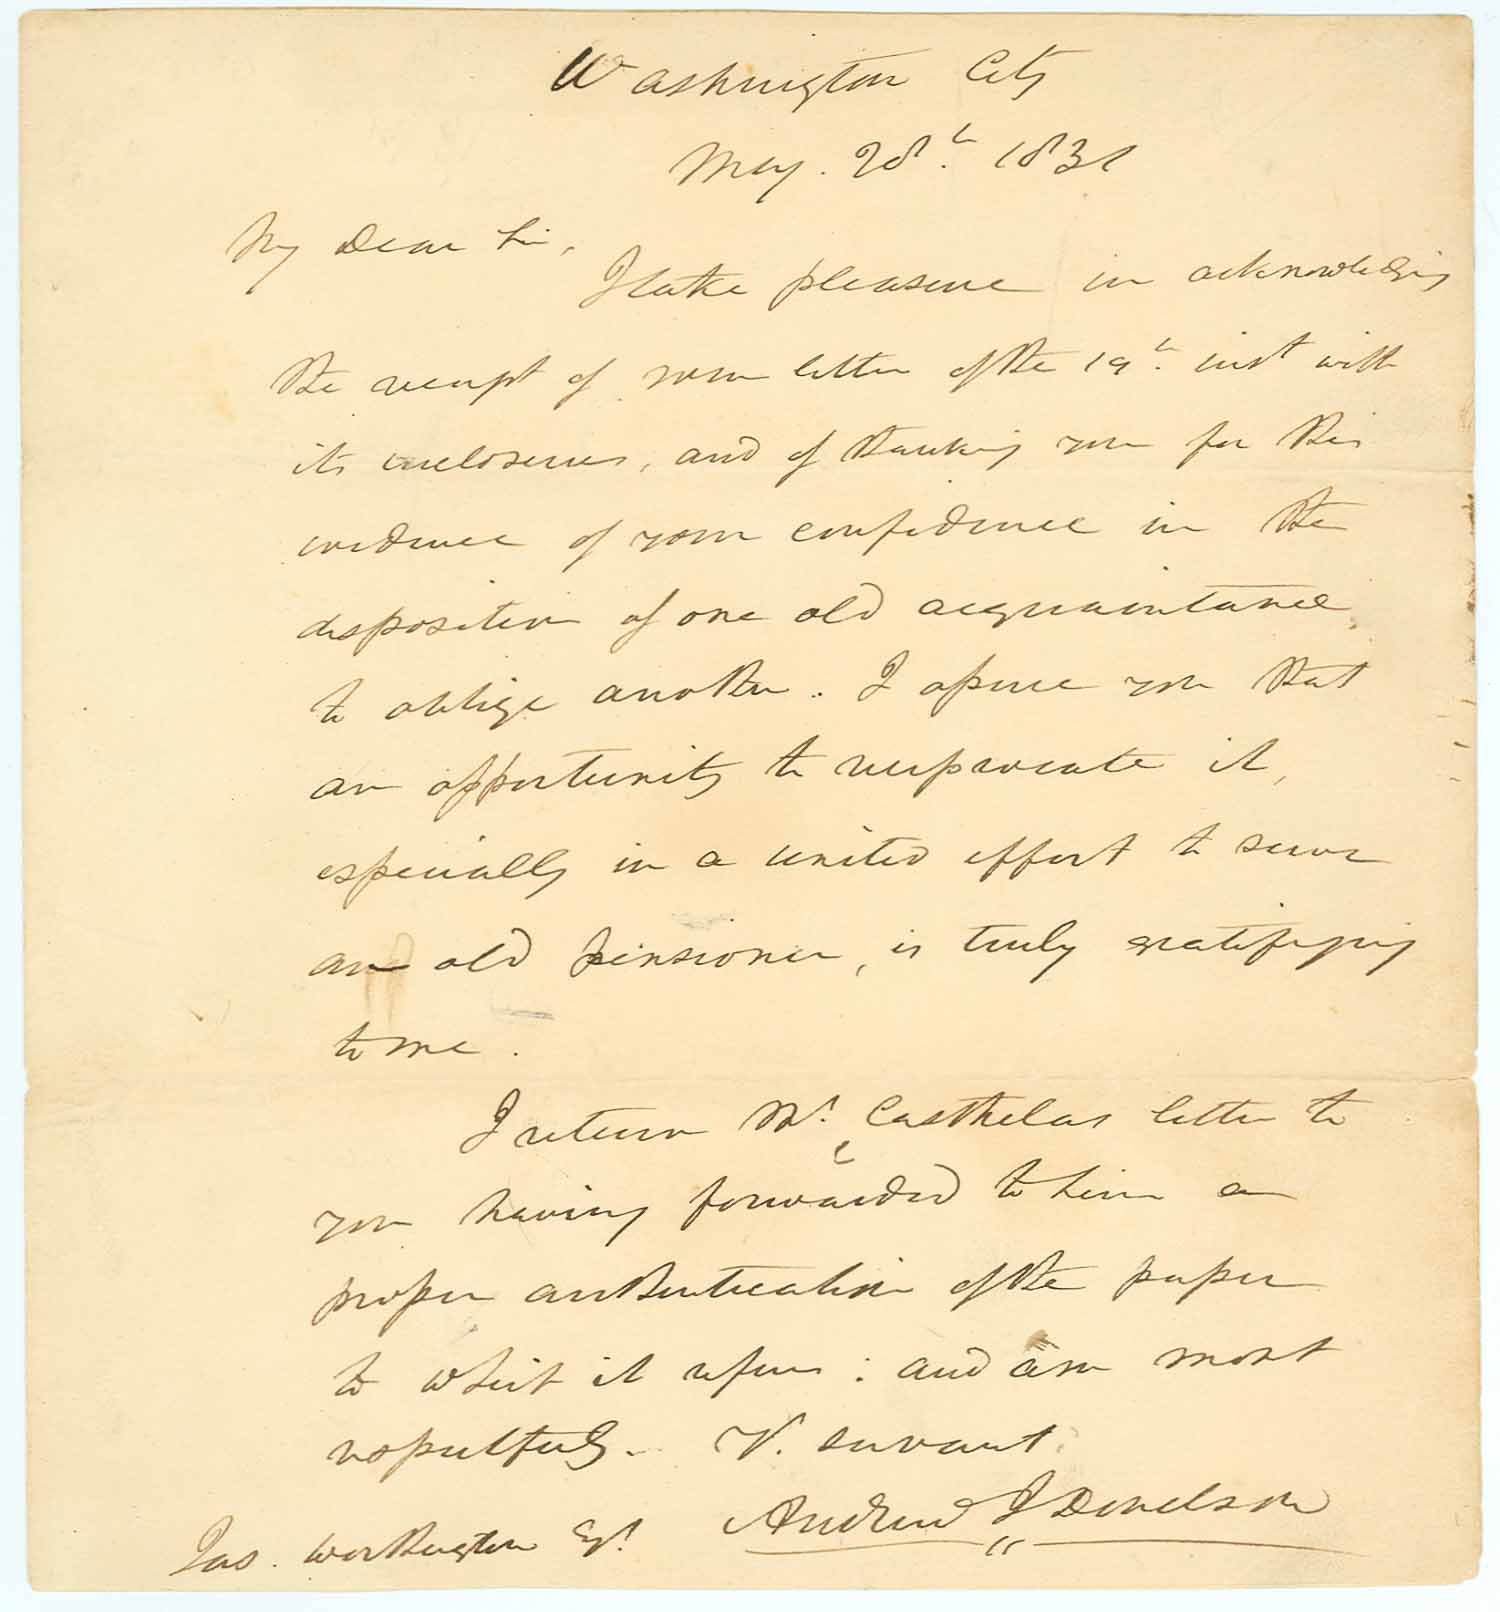 Washington City
May. 28th. 1831
My Dear Sir,
I take pleasure in acknowledging
the receipt of your letter of the 19th. inst with
its enclosures, and of thanking you for this
evidence of your confidence in the
disposition of one old acquaintance
to oblige another. I assure you that
an opportunity to reciprocate it,
especially in a united effort to serve
an old pensioner, is truly gratifying
to me.
I return Mr. Casthelas letter to
you having forwarded to him a
proper authentication of the paper
to which it refers: and am most
respectfully. Yr. servant
Andrew J Donelson
Jas. Worthington Esqr